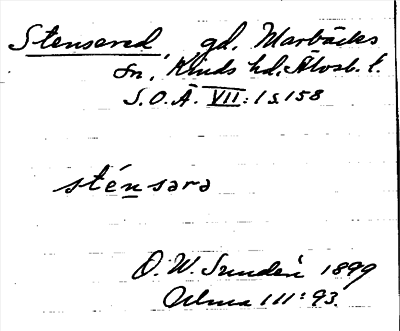 Stensered, gd, Marbäcks
sn, Kinds hd, Älvsb. l.
S.O.Ä. VII:1 s. 158
sténsərə
O. W. Sundén 1899
Ulma 111:93.